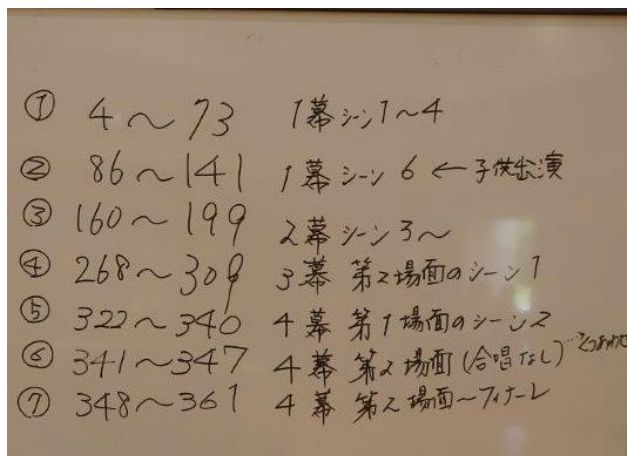 ① 4～73 1幕 シーン1～4
② 86～141 1幕 シーン 6 ← 子供出演
③ 160～199 2幕 シーン3～
④ 268～309 3幕 第2場面のシーン1
⑤ 322～340 4幕 第1場面のシーン2
⑥ 341～347 4幕 第2場面(合唱なし)…
⑦ 348～361 4幕 第2場面～フィナーレ